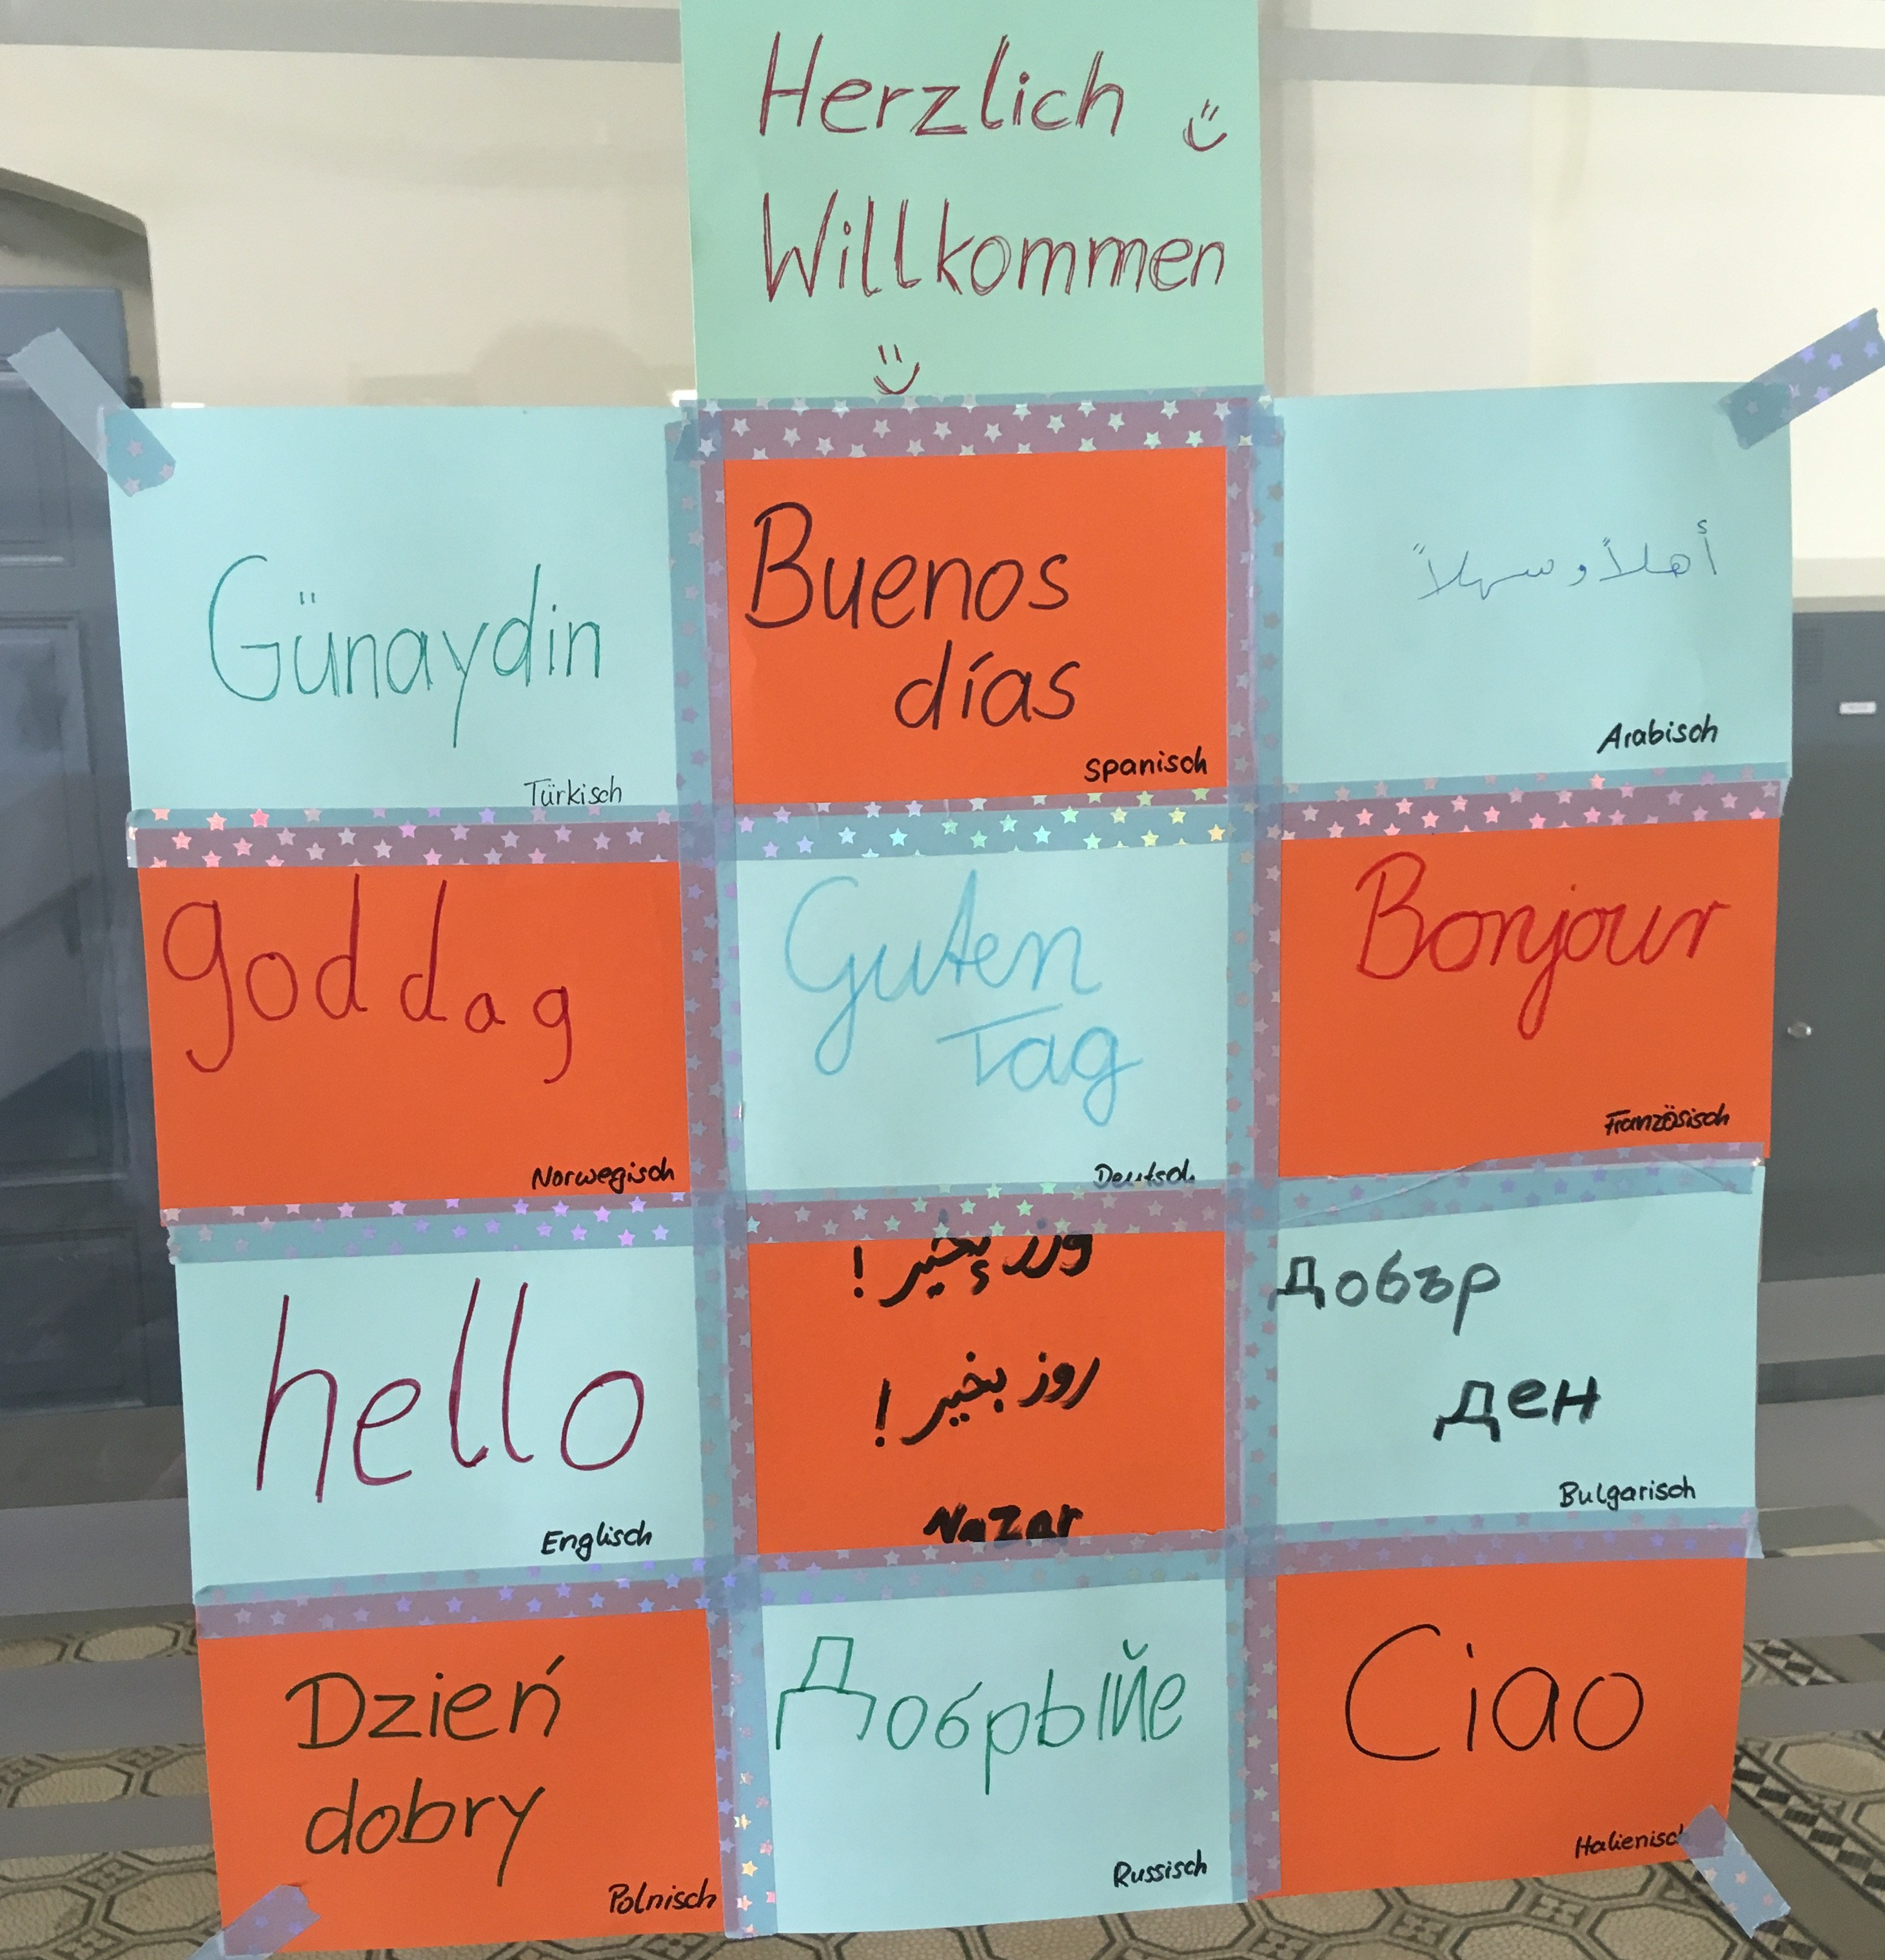 Herzlich
Willkommen
Günaydin
Türkisch
Buenos
días
Spanisch
أهلاً و سهلاً
Arabisch
god dag
Norwegisch
Guten
Tag
Deutsch
Bonjour
Französisch
hello
Englisch
روز بخیر !
روز بخیر !
Nazar
Добър
ден
Bulgarisch
Dzień
dobry
Polnisch
Добрыйе
Russisch
Ciao
Italienisch